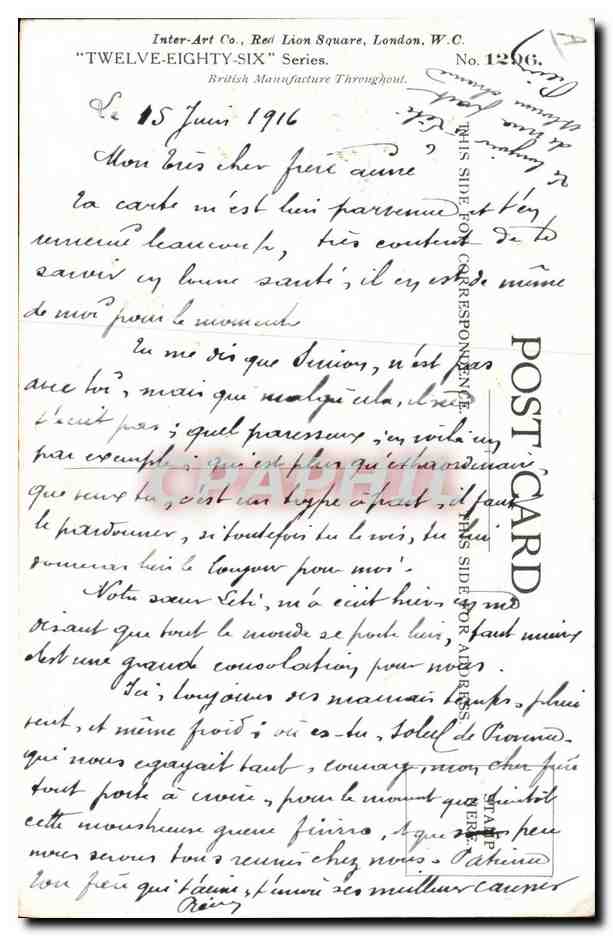 Inter-Art Co., Red Lion Square, London, W.C.
"TWELVE-EIGHTY-SIX" Series. No. 1296.
British Manufacture Throughout.
Le 15 Juin 1916
Mon très cher frère aimé
Ta carte m'est bien parvenue et t'en
remercie beaucoup, très content de te
savoir en bonne santé, il en est de même
de moi pour le moment
Tu me dis que Simon, n'est pas
avec toi, mais que malgré cela, il ne
t'écrit pas; quel paresseux, en voilà un
par exemple; qui est plus qu'extraordinaire,
que veux tu, c'est un type à part, il faut
le pardonner, si toutefois tu le vois, tu lui
donneras bien le bonjour pour moi.
Notre sœur Leti, m'a écrit hier en me
disant que tout le monde se porte bien, tant mieux
c'est une grande consolation pour nous.
Ici, toujours des mauvais temps, pluie
vent, et même froid; où es-tu, soleil de Provence
qui nous egayait tant, courage, mon cher frère
tout porte à croire, pour le moment que bientôt
cette monstrueuse guerre finira, et que sous peu
nous serons tous reunis chez nous. Patience
Ton frère qui t'aime, t'envoie ses meilleurs
THIS SIDE FOR CORRESPONDENCE.
THIS SIDE FOR ADDRESS
POST CARD
STAMP HERE.
CPAPHIL